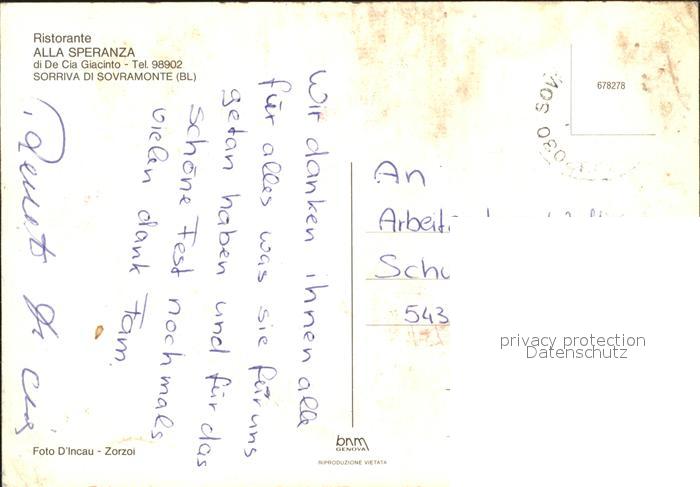 Ristorante
ALLA SPERANZA
di De Cia Giacinto - Tel. 98902
SORRIVA DI SOVRAMONTE (BL)
Wir danken ihnen alle
für alles was sie für uns
getan haben und für das
schöne Fest nochmals
vielen dank Fam.
678278
030
SOV
An
Schu
543
privacy protection
Datenschutz
Foto D'Incau - Zorzoi
bnm
GENOVA
RIPRODUZIONE VIETATA